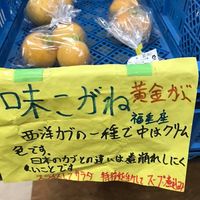 味こがね 黄金かぶ
福岡産
西洋かぶの一種で中はクリーム
色です。
日本のかぶとの違いは煮崩れしにく
いことです
サラダ
スープ 煮込み